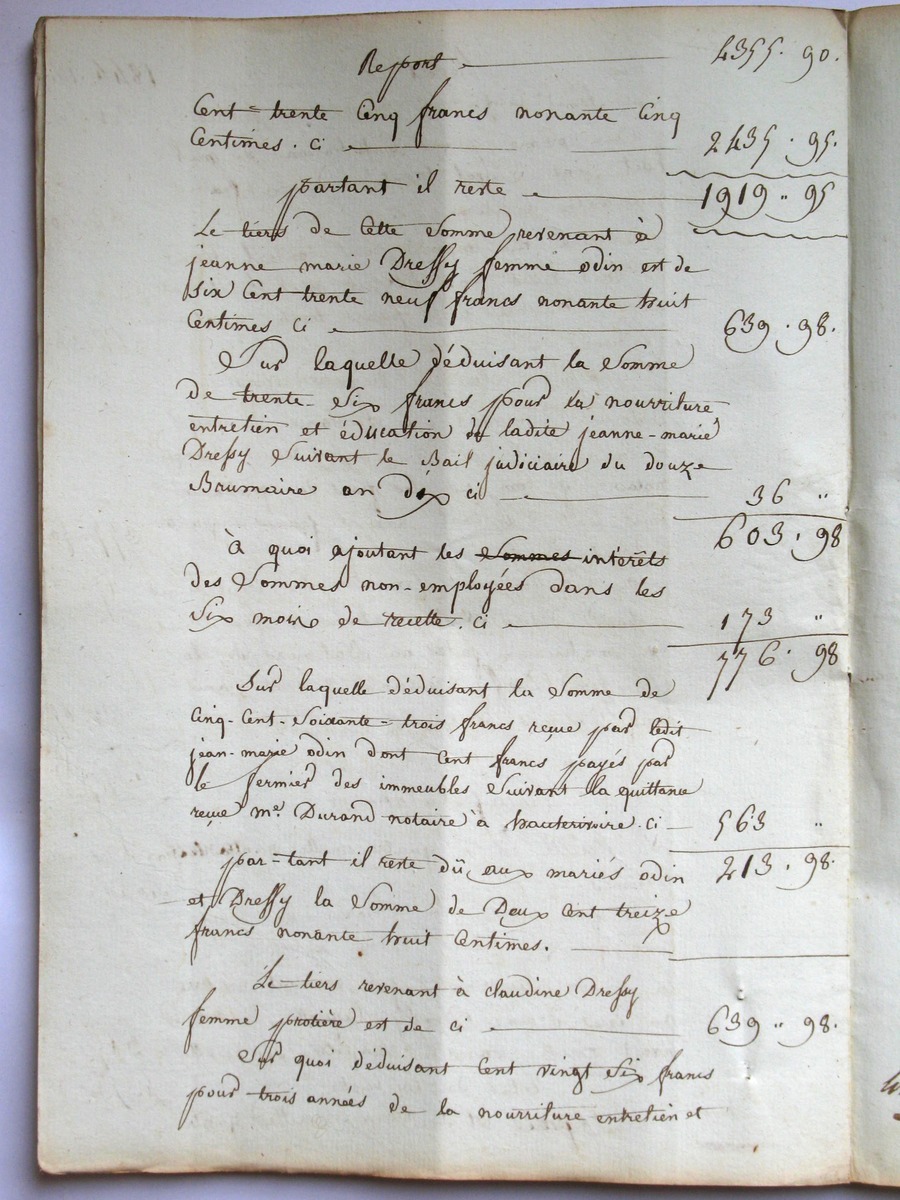 Report 4355. 90.
Cent-trente Cinq francs nonante Cinq
Centimes. ci 2435. 95.
partant il reste 1919 " 95
Le tiers de Cette Somme revenant à
jeanne marie Dressy femme odin est de
Six Cent trente neuf francs nonante huit
Centimes ci 639. 98.
Sur laquelle déduisant la Somme
de trente-Six francs pour la nourriture
entretien et éducation de ladite jeanne-marie
Dressy Suivant le Bail judiciaire du douze
Brumaire an dix ci 36 "
603. 98
à quoi ajoutant les Sommes intérêts
des Sommes non-employées dans les
Six mois de recette. ci 173 "
776. 98
Sur laquelle déduisant la Somme de
Cinq-Cent-Soixante-trois francs reçue par ledit
jean-marie odin dont Cent francs payés par
le fermier des immeubles Suivant la quittance
reçue me. Durand notaire à hauterivoire. ci 563 "
par-tant il reste dû aux mariés odin 213. 98.
et Dressy la Somme de Deux Cent treize
francs nonante huit Centimes.
Le tiers revenant à claudine Dressy
femme protière est de ci 639 " 98.
Sur quoi déduisant Cent vingt Six francs
pour trois années de la nourriture entretien et